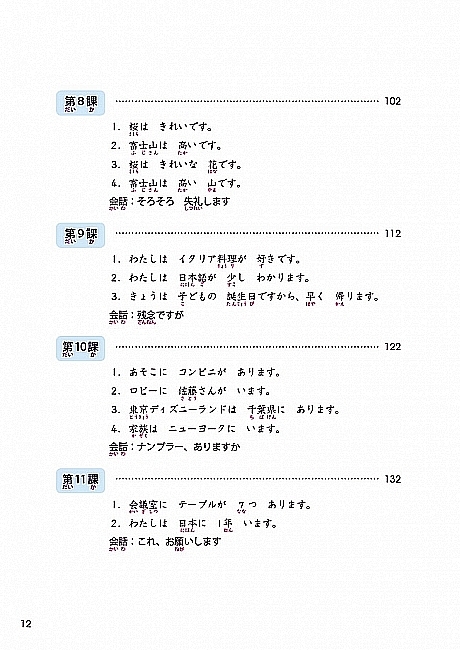 第8課 102
1. 桜は きれいです。
2. 富士山は 高いです。
3. 桜は きれいな 花です。
4. 富士山は 高い 山です。
会話:そろそろ 失礼します
第9課 112
1. わたしは イタリア料理が 好きです。
2. わたしは 日本語が 少し わかります。
3. きょうは 子どもの 誕生日ですから、早く 帰ります。
会話:残念ですが
第10課 122
1. あそこに コンビニが あります。
2. ロビーに 佐藤さんが います。
3. 東京ディズニーランドは 千葉県に あります。
4. 家族は ニューヨークに います。
会話:ナンプラー、ありますか
第11課 132
1. 会議室に テーブルが 7つ あります。
2. わたしは 日本に 1年 います。
会話:これ、お願いします
12